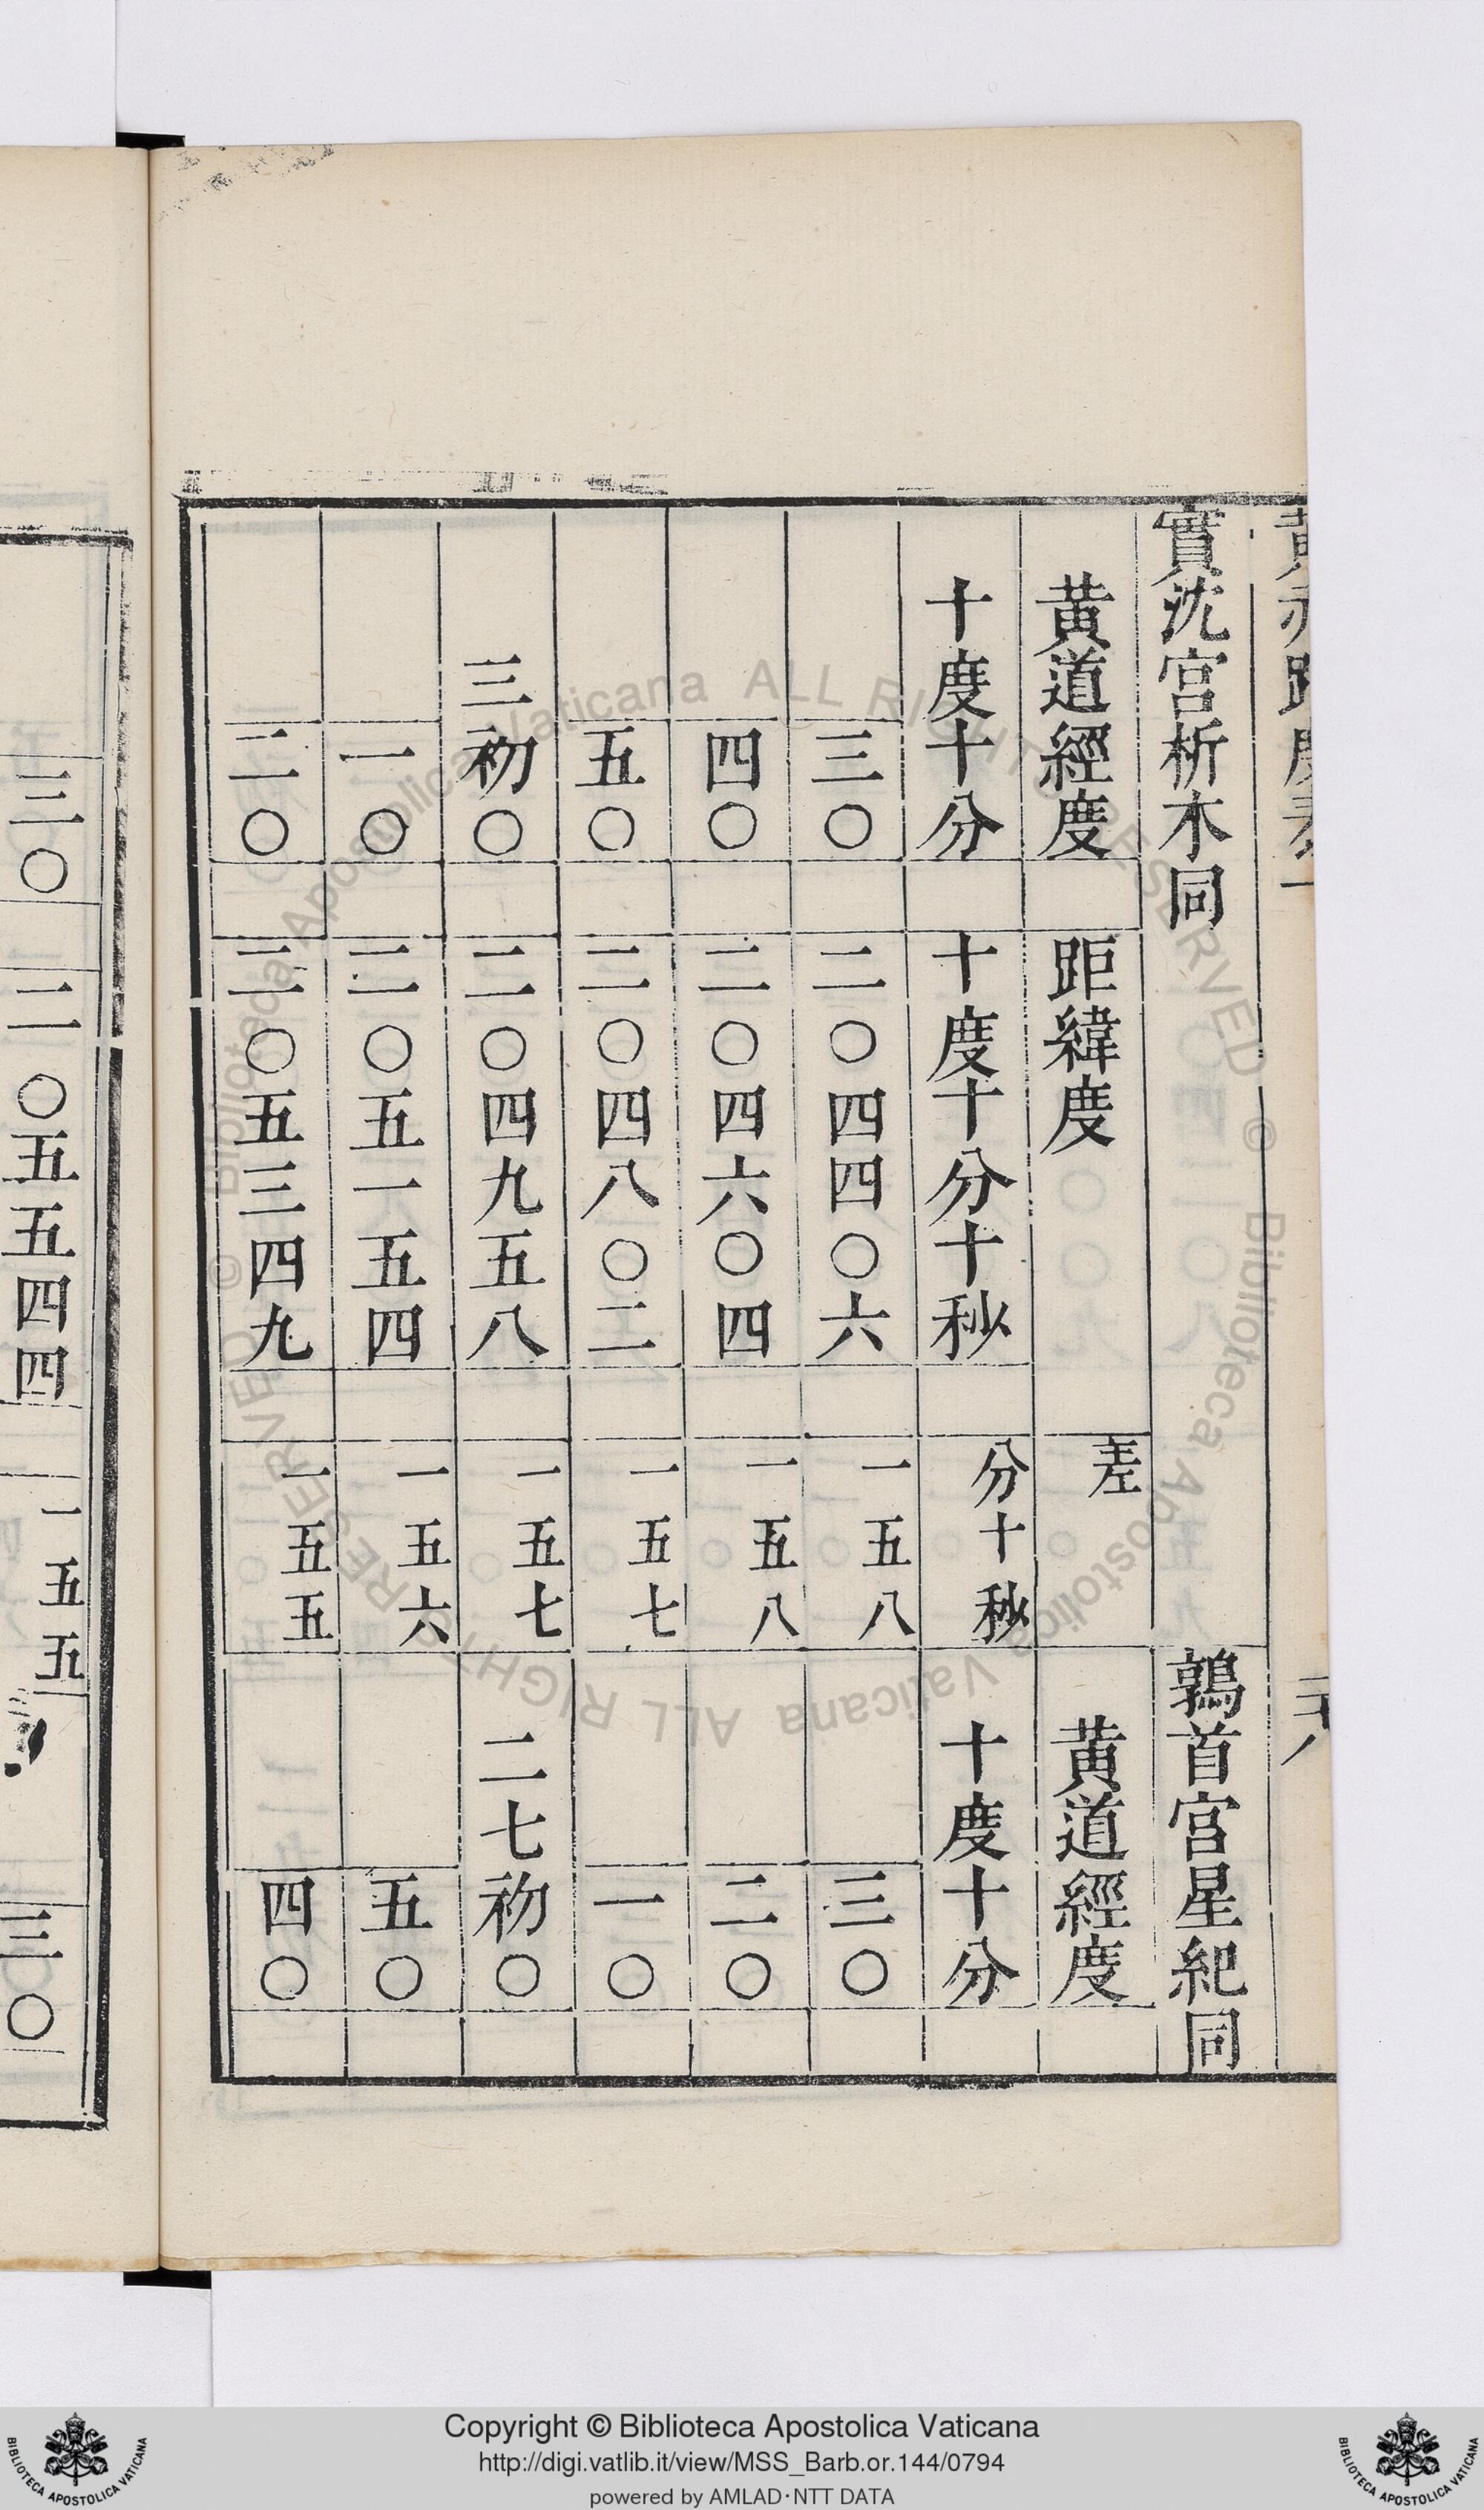 實沈宮析木同 鶉首宮星紀同
黃道經度 距緯度 差 黃道經度
十度十分 十度十分十秒 分十秒 十度十分
三〇 二〇四四〇六 一五八 三〇
四〇 二〇四六〇四 一五八 二〇
五〇 二〇四八〇二 一五七 一〇
三初〇 二〇四九五八 一五七 二七初〇
一〇 二〇五一五四 一五六 五〇
二〇 二〇五三四九 一五五 四〇
三〇 二〇五五四四 一五五 三〇
© Biblioteca Apostolica Vaticana ALL RIGHTS RESERVED © Biblioteca Apostolica Vaticana ALL RIGHTS RESERVED
Copyright © Biblioteca Apostolica Vaticana
http://digi.vatlib.it/view/MSS_Barb.or.144/0794
powered by AMLAD·NTT DATA
BIBLIOTECA APOSTOLICA VATICANA
BIBLIOTECA APOSTOLICA VATICANA